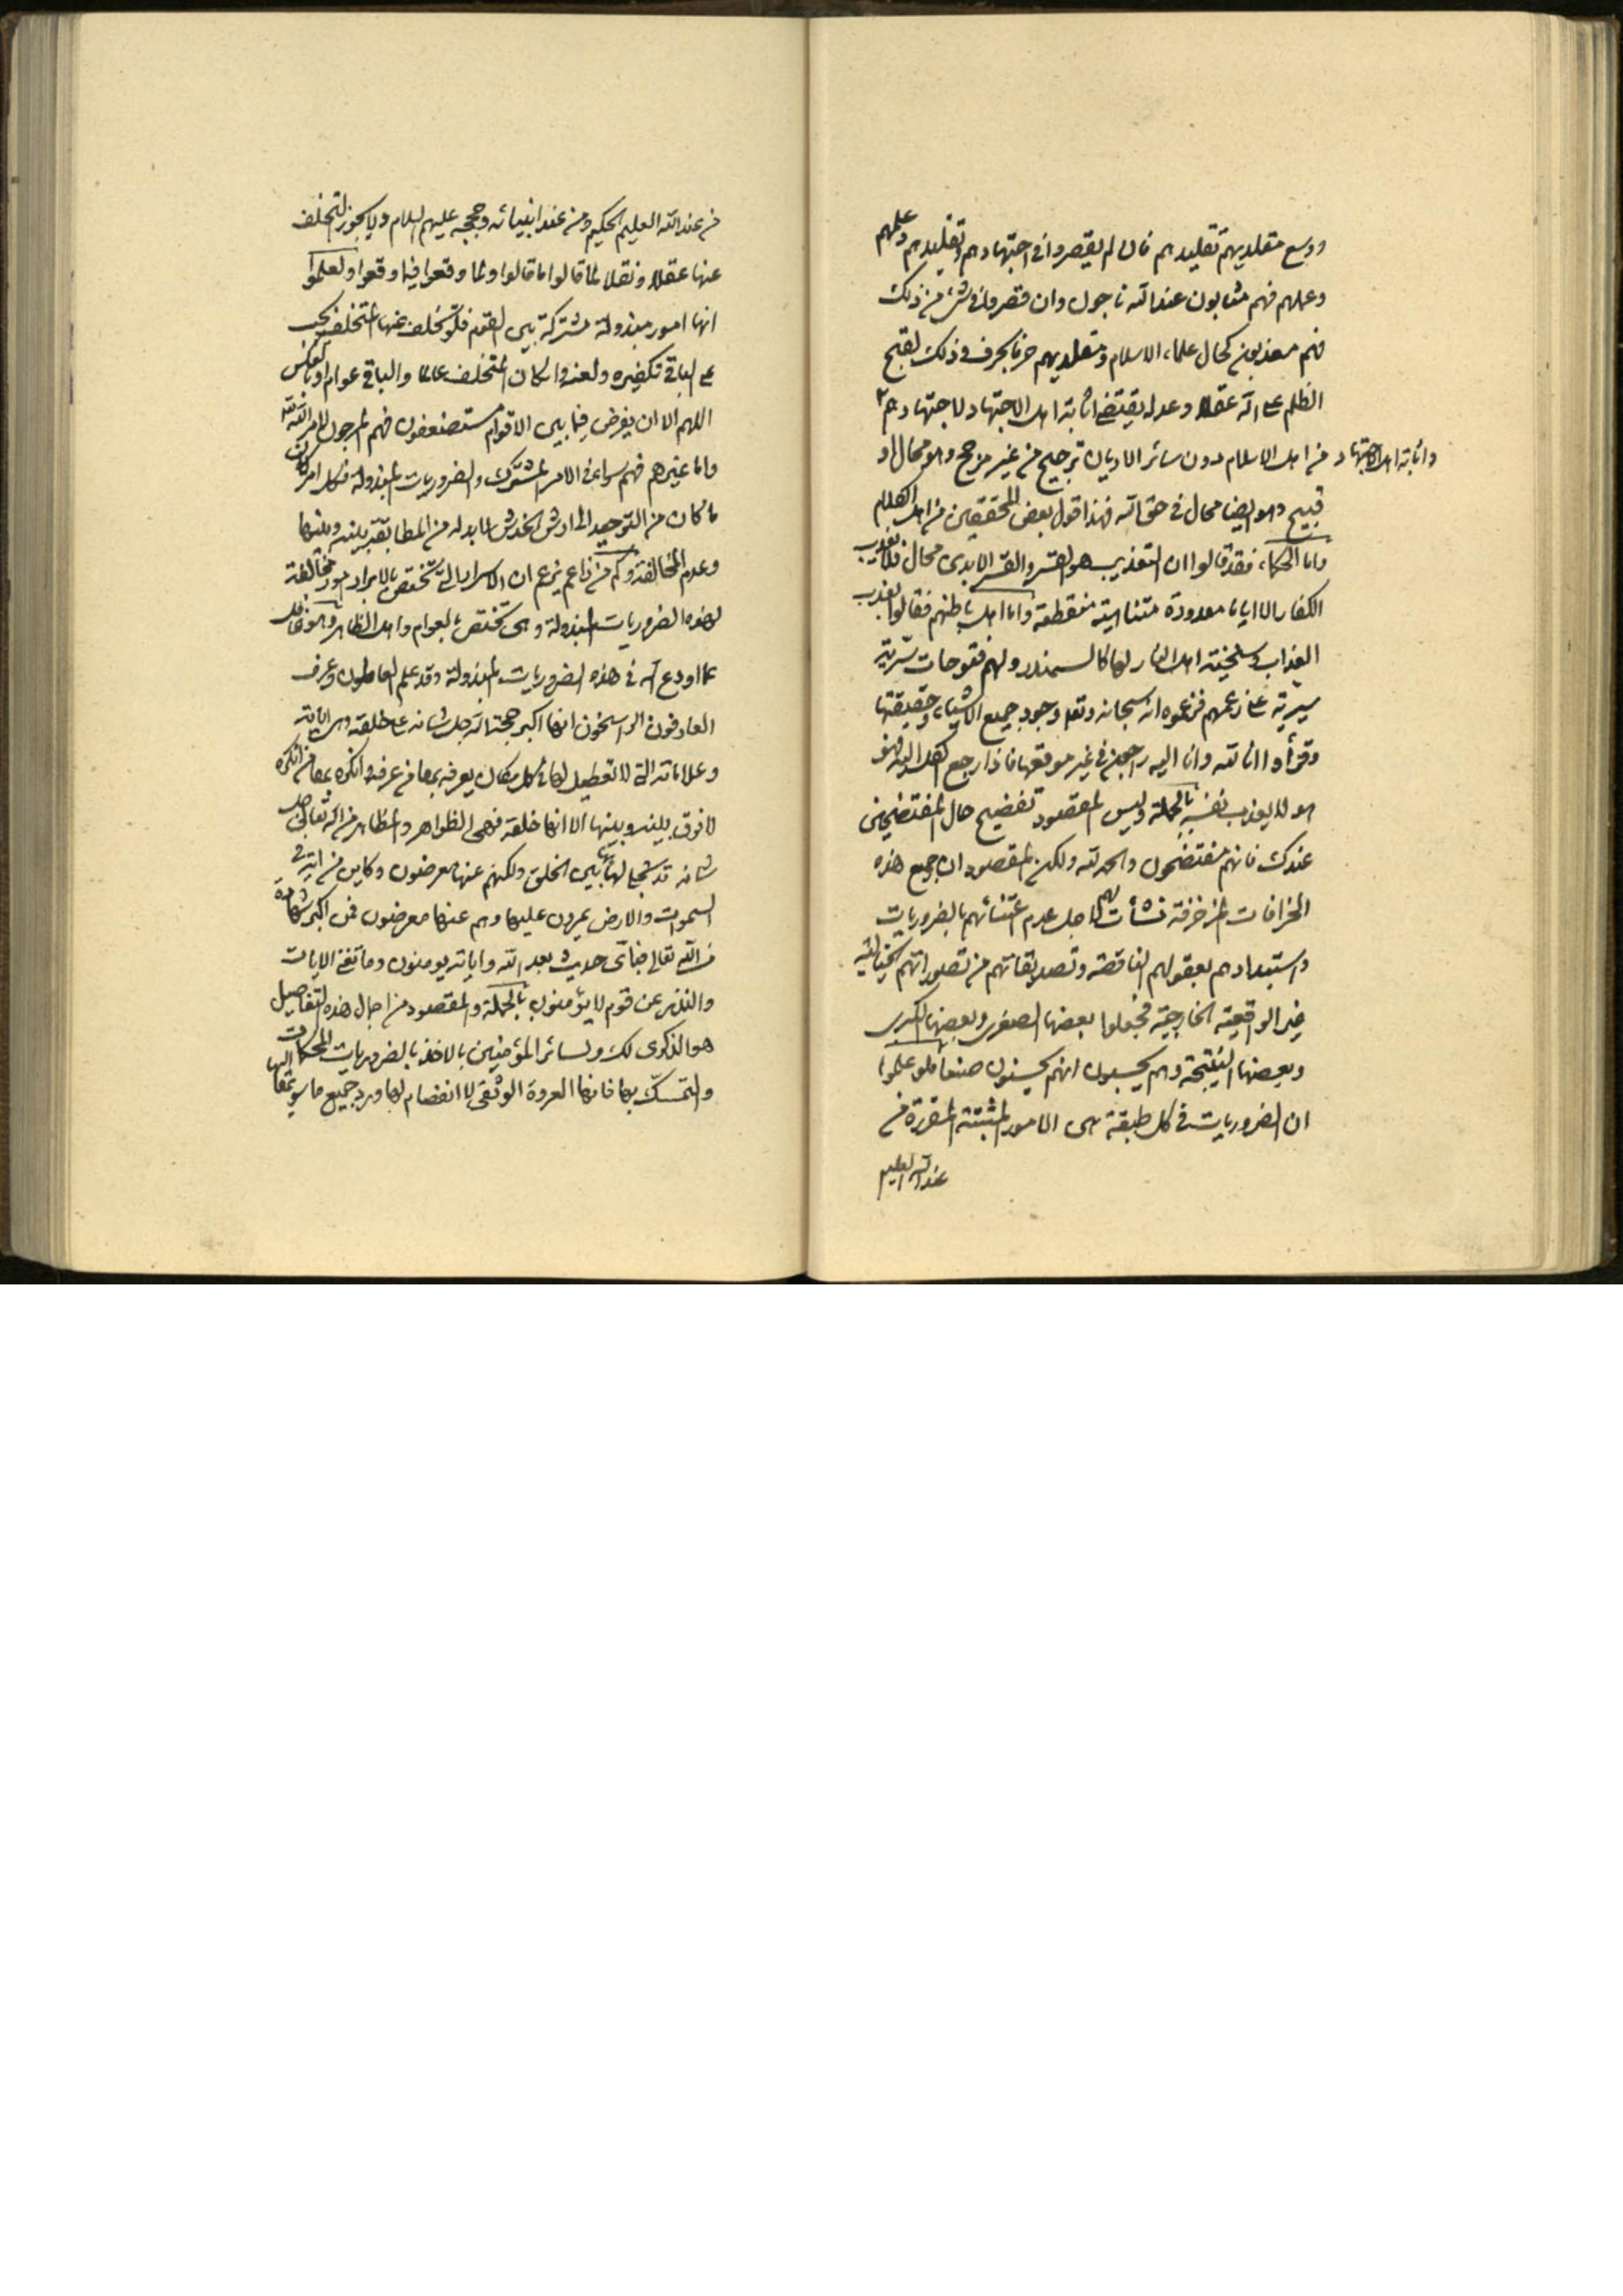 ووسع مقلديهم تقليدهم فان لم يقصروا في اجتهادهم وتقليدهم وعلمهم
وعملهم فهم مثابون عند الله ناجون وان قصروا في شئ من ذلك
فهم معذبون كحال علماء الاسلام ومقلديهم حرفا بحرف وذلك لقبح
الظلم على الله عقلا وعدله يقتضي اثابة اهل الاجتهاد لاجتهادهم
واثابة اهل الاجتهاد من اهل الاسلام دون سائر الاديان ترجيح من غير مرجح وهو محال او
قبيح وهو ايضا محال في حق الله فهذا قول بعض المحققين من اهل الكلام
واما الحكماء فقد قالوا ان التعذيب هو القسر والقسر الابدي محال فلا يعذب
الكفار الا اياما معدودة متناهية منقطعة واما اهل باطنهم فقالوا بعذب
العذاب وسنخية اهل النار لها كالسمندر ولهم فتوحات سرية
سيرية على زعمهم فزعموه انه سبحانه وتعالى وجود جميع الاشياء وحقيقتها
وقرأوا انا لله وانا اليه راجعون في غير موقعها فاذا رجع الكل اليه فهو
هو لا يعذب نفسه بالجملة وليس المقصود تفضيح حال المفتضحين
عندك فانهم مفتضحون والحمد لله ولكن المقصود ان جميع هذه
الخرافات المزخرفة نشأت لهم لاجل عدم اعتنائهم بالضروريات
واستبدادهم بعقولهم الناقصة وتصديقاتهم من تصوراتهم الخيالية
غير الواقعية الخارجية فجعلوا بعضها الصغرى وبعضها الكبرى
وبعضها النتيجة وهم يحسبون انهم يحسنون صنعا فلو علموا
ان الضروريات في كل طبقة هي الامور المثبتة المقررة من
عند الله العليم
من عند الله العليم الحكيم ومن عند انبيائه وحججه عليهم السلام ولا يجوز التخلف
عنها عقلا ونقلا لما قالوا ما قالوا ولما وقعوا فيما وقعوا ولعلموا
انها امور مبذولة مشتركة بين القوم فلو تخلف عنها المتخلف يجب
على الباقي تكفيره ولعنه وان كان المتخلف عالما والباقي عوام او بالعكس
اللهم الا ان يفرض فيما بين الاقوام مستضعفون فهم المرجون لامر الله
واما غيرهم فهم سواء في الامر المشترك والضروريات المبذولة فكل امر كان
ما كان من التوحيد الى ارش الخدش لا بد له من المطابقة بينه وبينها
وعدم المخالفة وكم من زاعم يزعم ان الاسرار التي تختص بالابرار امور مخالفة
لهذه الضروريات المبذولة وهي تختص بالعوام واهل الظاهر وهو غافل
عما اودع الله في هذه الضروريات المبذولة وقد علم العاملون وعرف
العارفون الراسخون انها اكبر حجة الله جل شانه على خلقه وهي اياته
وعلاماته التي لا تعطيل لها في كل مكان يعرفه بها من عرفه وانكره بها من انكره
لا فرق بينه وبينها الا انها خلقه فهي الظواهر والمظاهر من الله تعالى جل
شانه قد تجلى لها بها بين الخلق ولكنهم عنها معرضون وكاين من اية في
السموات والارض يمرون عليها وهم عنها معرضون فمن اكبر شهادة
من الله تعالى فبأى حديث بعد الله واياته يومنون وما تغنى الايات
والنذر عن قوم لا يؤمنون بالجملة والمقصود من اجمال هذه التفاصيل
هو الذكرى لك ولسائر المؤمنين بالاخذ بالضروريات المحكمات
والتمسك بها فانها العروة الوثقى لا انفصام لها ورد جميع ما سويها اليها